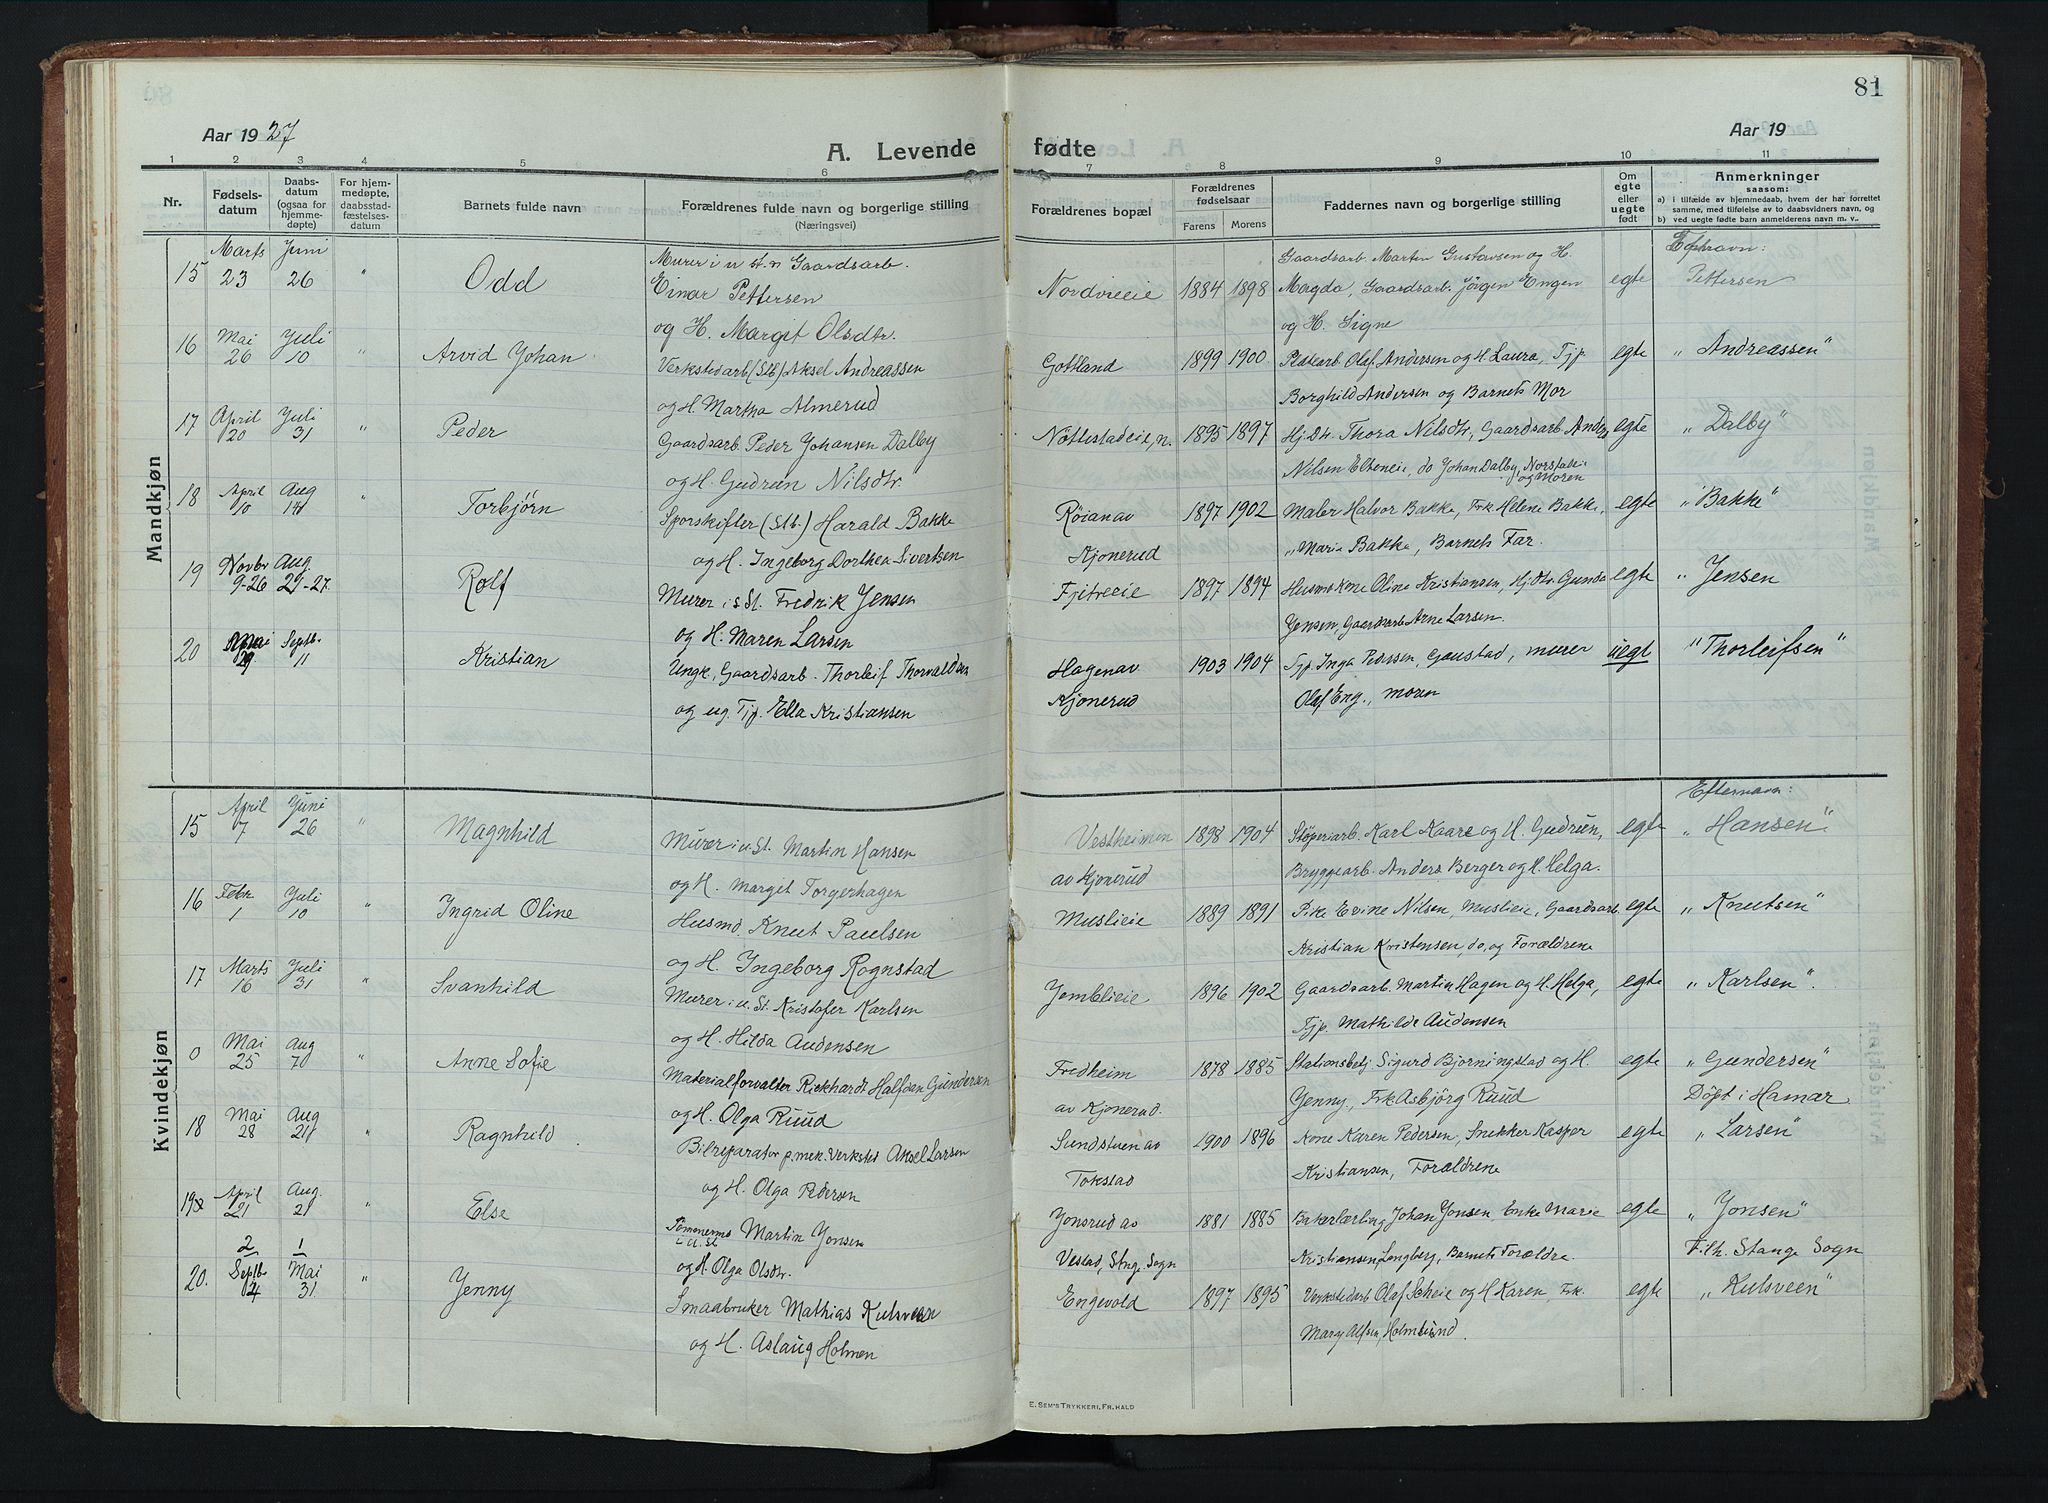 81
Aar 1927
Aar 19
A. Levende fødte
1 2 3 4 5 6 7 8 9 10 11
Nr.
Fødsels-
datum
Daabs-
datum
(ogsaa for
hjemme-
døpte)
For hjem-
medøpte,
daabsstad-
fæstelses-
datum
Barnets fulde navn
Forældrenes fulde navn og borgerlige stilling
(Næringsvei)
Forældrenes bopæl
Forældrenes
fødselsaar
Farens Morens
Faddernes navn og borgerlige stilling
Om
egte
eller
uegte
født
Anmerkninger
saasom:
a) i tilfælde av hjemmedaab, hvem der har forrettet
samme, med tilføielse av to daabsvidners navn, og
b) ved uegte fødte barn anmelderens navn m. v..
Mandkjøn
15 Marts 23 Juni 26 " Odd
Murer i u st. n Gaardsarb.
Einar Pettersen
og H. Margit Olsdtr.
Nordvieeie 1884 1898
Gaardsarb. Martin Gustavsen og H.
Magda, Gaardsarb. Jörgen Engen
og H. Signe
egte
Efternavn:
Pettersen
16 Mai 26 Juli 10 " Arvid Johan
Verkstedarb (Stb) Aksel Andreassen
og H. Martha Almerud
Gottland 1899 1900
Platearb. Olaf Andersen og H. Laura, Tjp.
Borghild Andersen og Barnets Mor
egte
"Andreassen"
17 April 20 Juli 31 " Peder
Gaardsarb. Peder Johansen Dalby
og H. Gudrun Nilsdtr.
Nöttestadeie, n. 1895 1897
Hj. Dtr. Thora Nilsdtr, Gaardsarb Anders
Nilsen Elteneie, do Johan Dalby, Norstadei
og Moren
egte
"Dalby"
18 April 10 Aug 14 " Torbjörn
Sporskifter (Stb.) Harald Bakke
og H. Ingeborg Dorthea Sivertsen
Röian av
Kjonerud
1897 1902
Maler Halvor Bakke, Frk Helene Bakke,
" Marie Bakke, Barnets Far.
egte
"Bakke"
19 Novbr 9-26 Aug. 21-27. Rolf
Murer i s St. Fredrik Jensen
og H. Maren Larsen
Fjitreeie 1897 1894
Husmdkone Oline Kristiansen, Hj. dtr. Gunda
Jensen, Gaardsarb Arne Larsen.
egte
" Jensen
20 Mai 29. Septb. 11 Kristian
Ungk., Gaardsarb. Thorleif Thorvaldsen
og ug. Tjp. Ella Kristiansen
Hagen av
Kjonerud
1903 1904
Tjp. Inga Pedersen, Gaustad, murer
Olaf Eng., moren
uegt
"Thorleifsen"
Kvindekjøn
15 April 7 Juni 26 " Magnhild
Murer i u. St. Martin Hansen
og H. Margit Torgerhagen
Vestheimen
av Kjonerud
1898 1904
Stöperiarb. Karl Kaare og H. Gudrun,
Bryggearb. Anders Berger og H. Helga.
egte
Efternavn:
"Hansen".
16 Febr. 1 Juli 10 " Ingrid Oline
Husmd. Knut Paulsen
og H. Ingeborg Rognstad
Muslieie 1889 1891
Pike Evine Nilsen, Muslieie, Gaardsarb.
Kristian Kristensen, do, og Forældrene
egte
"Knutsen"
17 Marts 16 Juli 31 " Svanhild
Murer i u. St. Kristofer Karlsen
og H. Hilda Audensen
Jemblieie 1896 1902
Gaardsarb. Martin Hagen og H. Helga,
Tjp. Mathilde Audensen
egte
"Karlsen".
0 Mai 25 Aug 70 " Anne Sofie
Materialforvalter Rickhardt Halfdan Gundersen
og H. Olga Ruud
Fredheim
av Kjonerud.
1878 1885
Stationsbetj. Sigurd Bjorningstad og H.
Jenny, Frk Asbjörg Ruud
egte
"Gundersen"
Döpt i Hamar
18 Mai 28 Aug 21 " Ragnhild
Bilreparatør p. mek. Verksted Aksel Larsen
og H. Olga Pedersen
Sundstuen av
Tokstad
1900 1896
Kone Karen Pedersen, Snekker Kasper
Kristiansen, Forældrene
egte
"Larsen"
19 April 21 Aug. 21 " Else
Tömmermd i u. St Martin Jonsen
og H. Olga Olsdtr.
Jonsrud av
Vestad, Stnge. Sogn
1881 1885
Bakerlærling Johan Jonsen, Enke Marie
Kristiansen, Langberg, Barnets Forældre.
egte
"Jonsen"
Tilh. Stange Sogn
20. Septb 24 Mai 31. " Jenny
Smaabruker Mathias Kulsveen
og H. Aslaug Holmen
Engevold 1897 1895
Verkstedarb Olaf Scheie og H Karen, Frk.
Mary Alfsen, Holmlund.
egte
"Kulsveen"
E. SEM'S TRYKKERI, FR.HALD